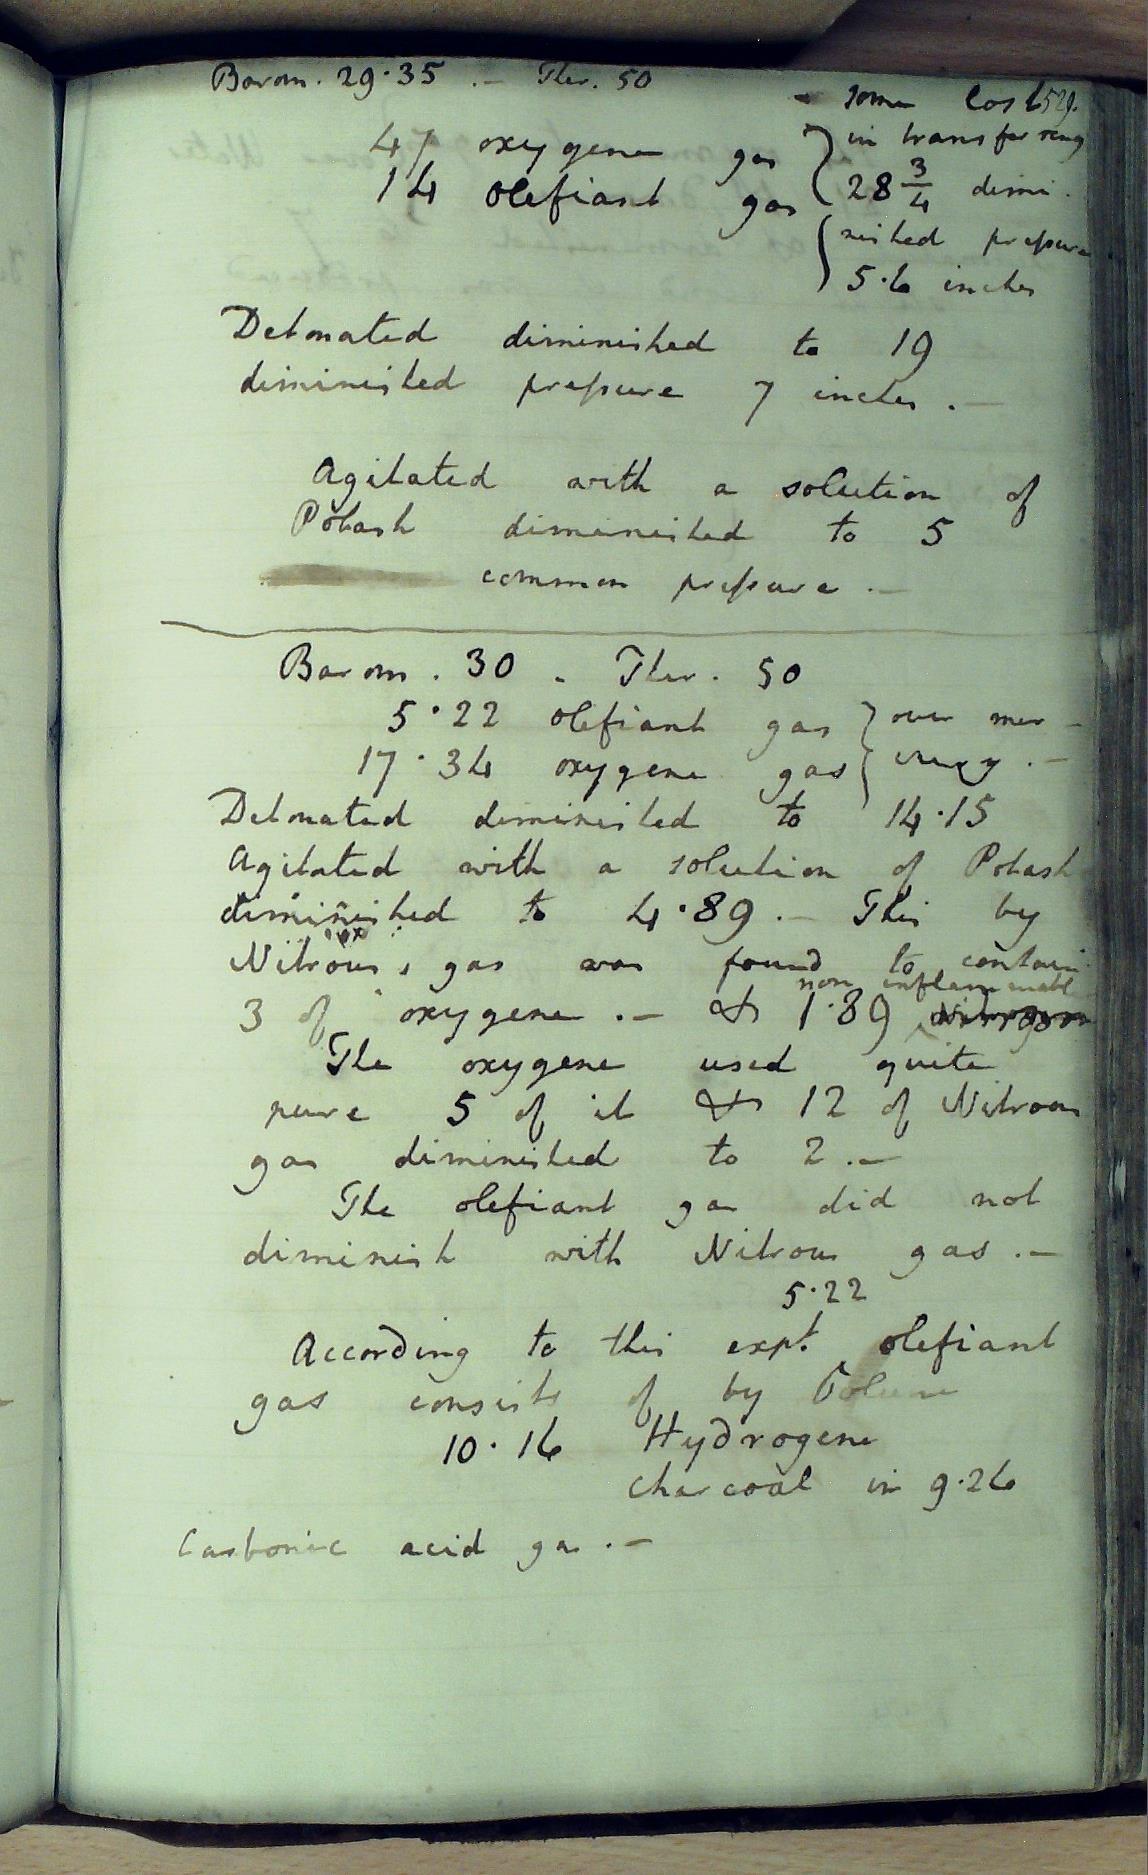 Barom. 29·35 .– Ther. 50
– some lost 529.
47 oxygene gas } in transferring
14 olefiant gas 28 3/4 dimi
nished pressure
5·6 inches
Detonated diminished to 19
diminished pressure 7 inches .–
Agitated with a solution of
Potash diminished to 5
common pressure .–
Barom. 30 . Ther. 50
5·22 olefiant gas } over mer-
17·34 oxygene gas { cury .–
Detonated diminished to 14·15
Agitated with a solution of Potash
diminished to 4·89 .– This by
Nitrous gas was found to contain
non inflammable
3 of oxygene .– & 1·89 Nitrogen
The oxygene used quite
pure 5 of it & 12 of Nitrous
gas diminished to 2 .–
The olefiant gas did not
diminish with Nitrous gas .–
5·22
According to this expt. olefiant
gas consists of by Volume
10·16 Hydrogene
charcoal in 9·26
Carbonic acid gas .–